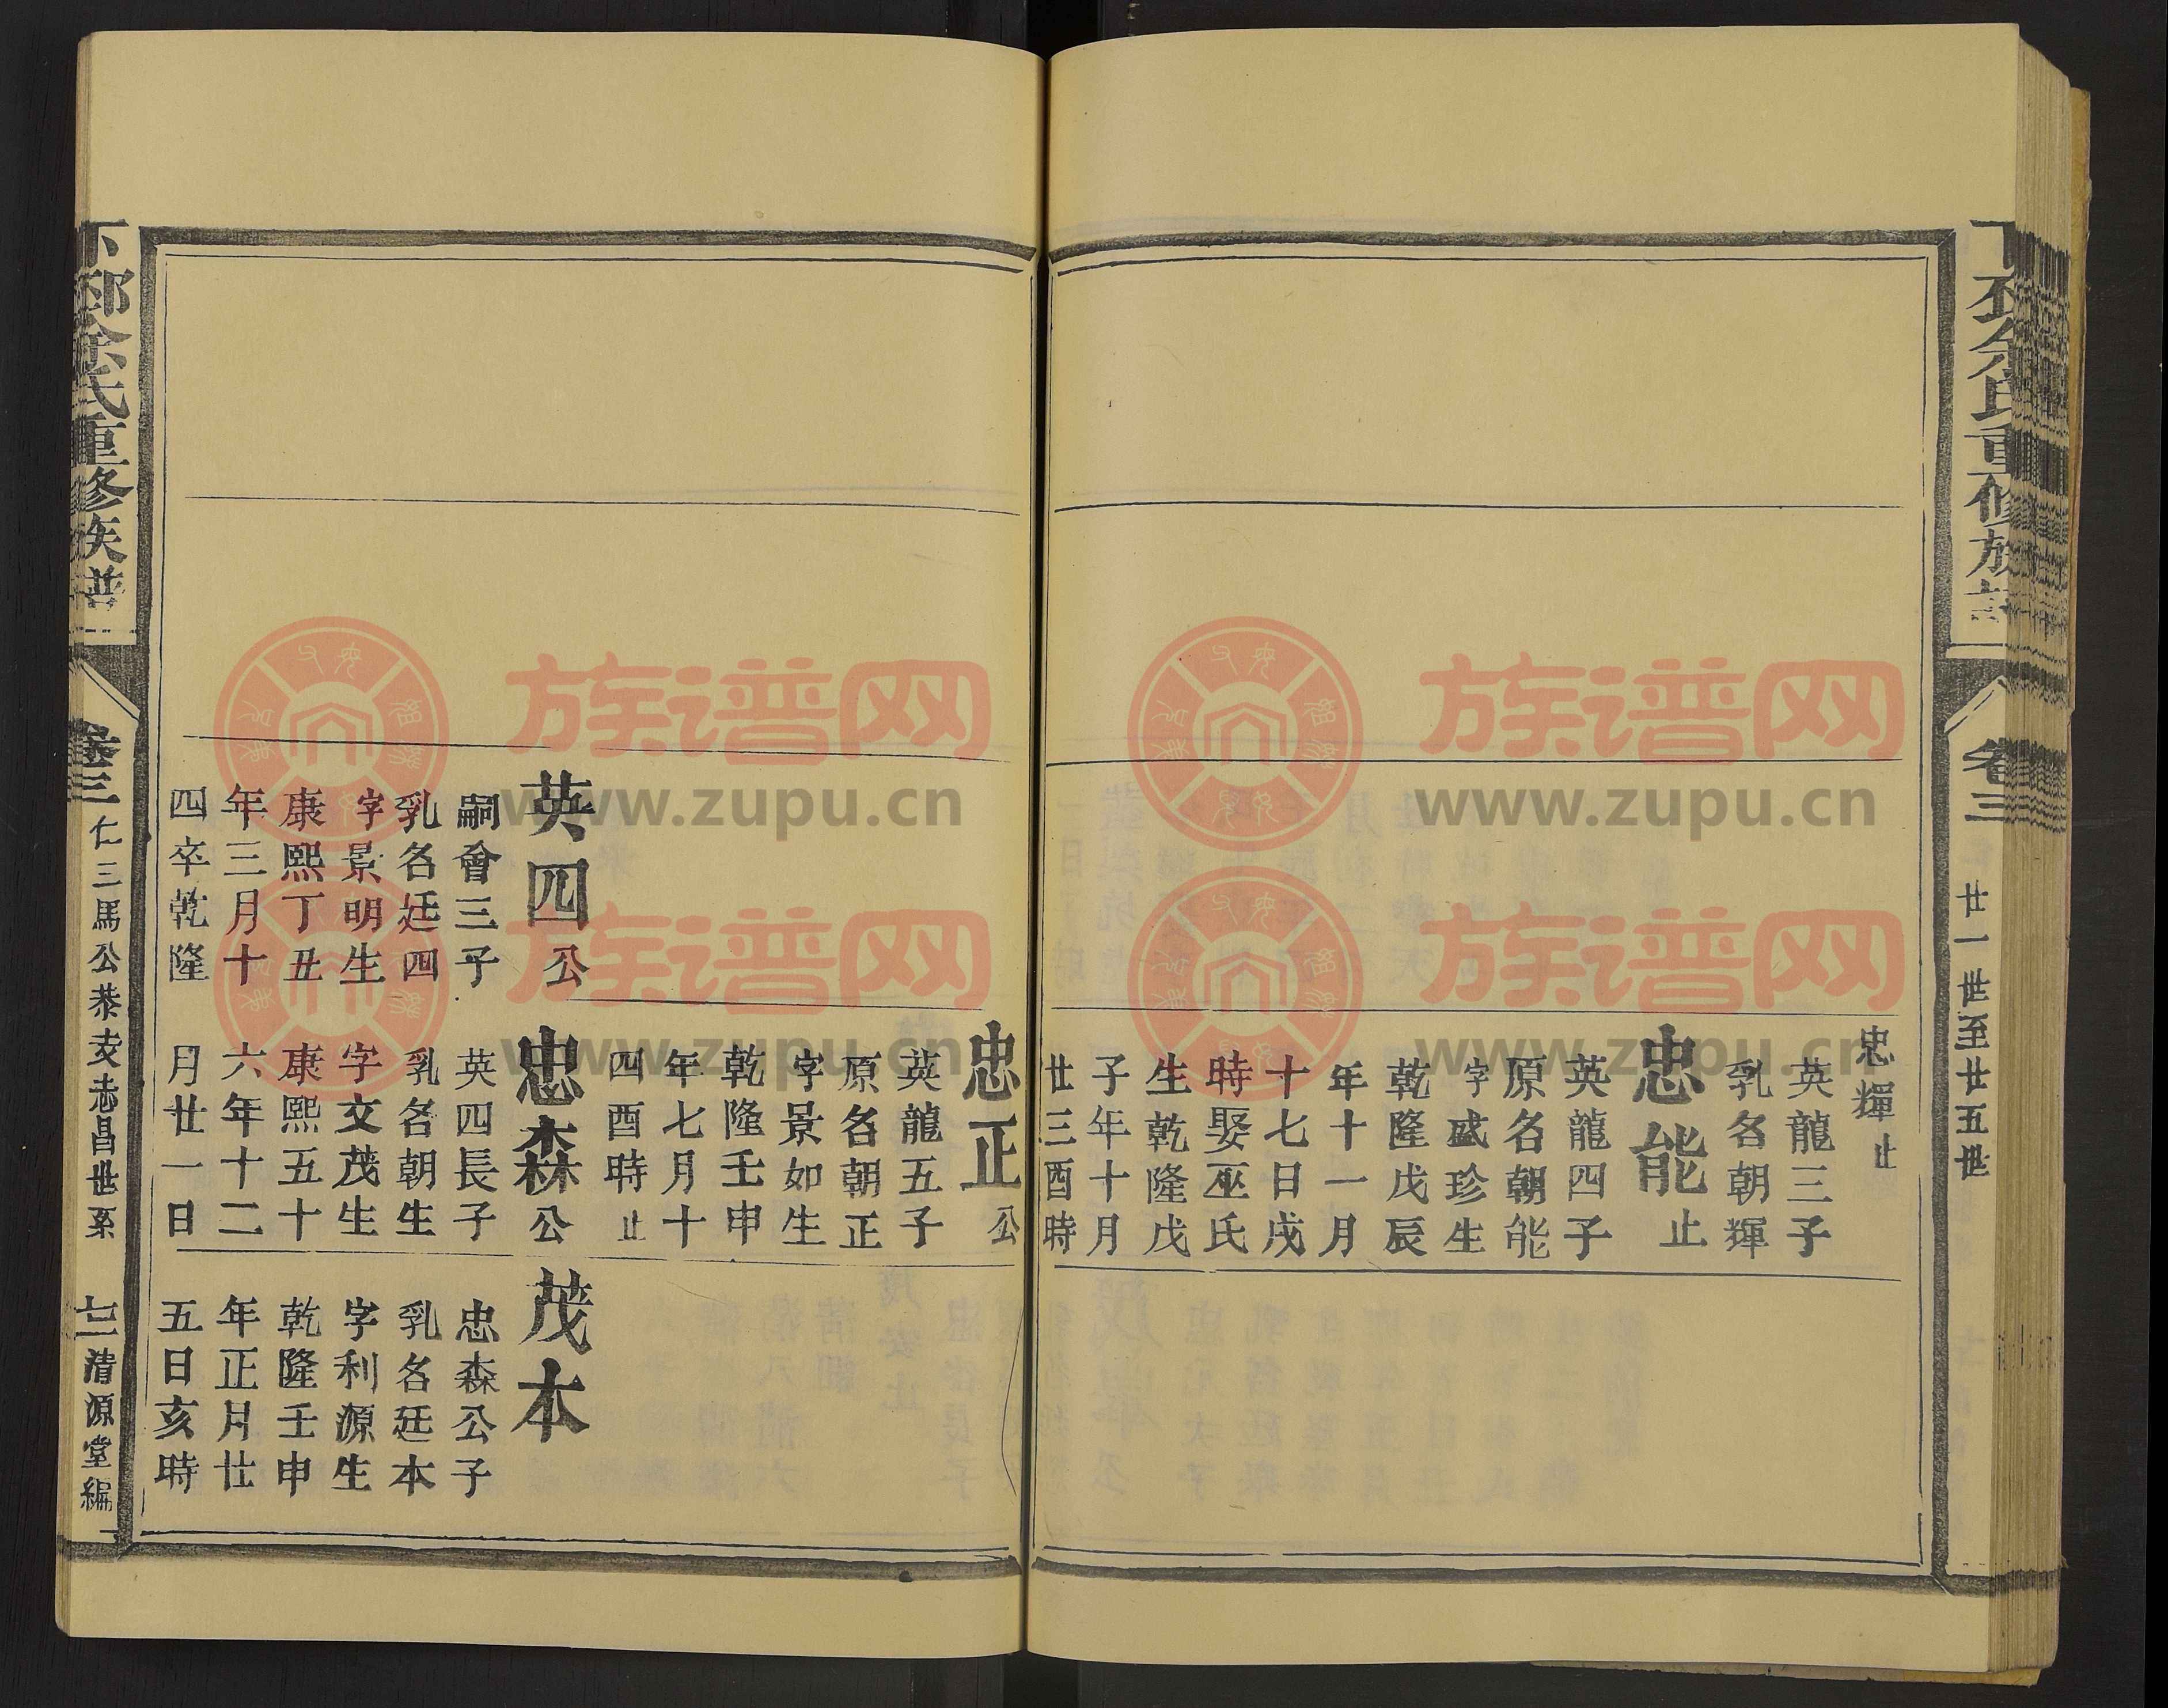 卷三
廿一世至廿五世
忠輝止
英龍三子
乳名朝輝
忠能止
英龍四子
原名朝能
字盛珍生
乾隆戊辰
年十一月
十七日戌
時娶巫氏
生乾隆戊
子年十月
廿三酉時
忠正公
英龍五子
原名朝正
字景如生
乾隆壬申
年七月十
四酉時止
英四公
嗣會三子
乳名廷四
字景明生
康熙丁丑
年三月十
四卒乾隆
忠森公
英四長子
乳名朝生
字文茂生
康熙五十
六年十二
月廿一日
茂本
忠森公子
乳名廷本
字利源生
乾隆壬申
年正月廿
五日亥時
下邳余氏重修族譜
卷三
仁三馬公恭支赤昌世系
清源堂編
族谱网
www.zupu.cn
族谱网
www.zupu.cn
族谱网
www.zupu.cn
族谱网
www.zupu.cn